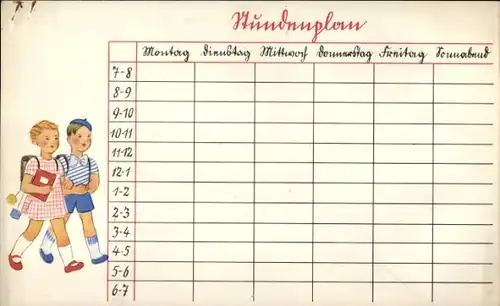 Stundenplan
Montag Dienstag Mittwoch Donnerstag Freitag Sonnabend
7-8
8-9
9-10
10-11
11-12
12-1
1-2
2-3
3-4
4-5
5-6
6-7